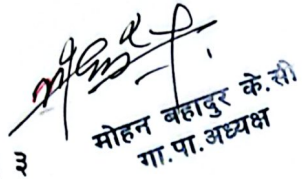 मोहन बहादुर के.सी
गा.पा.अध्यक्ष
३